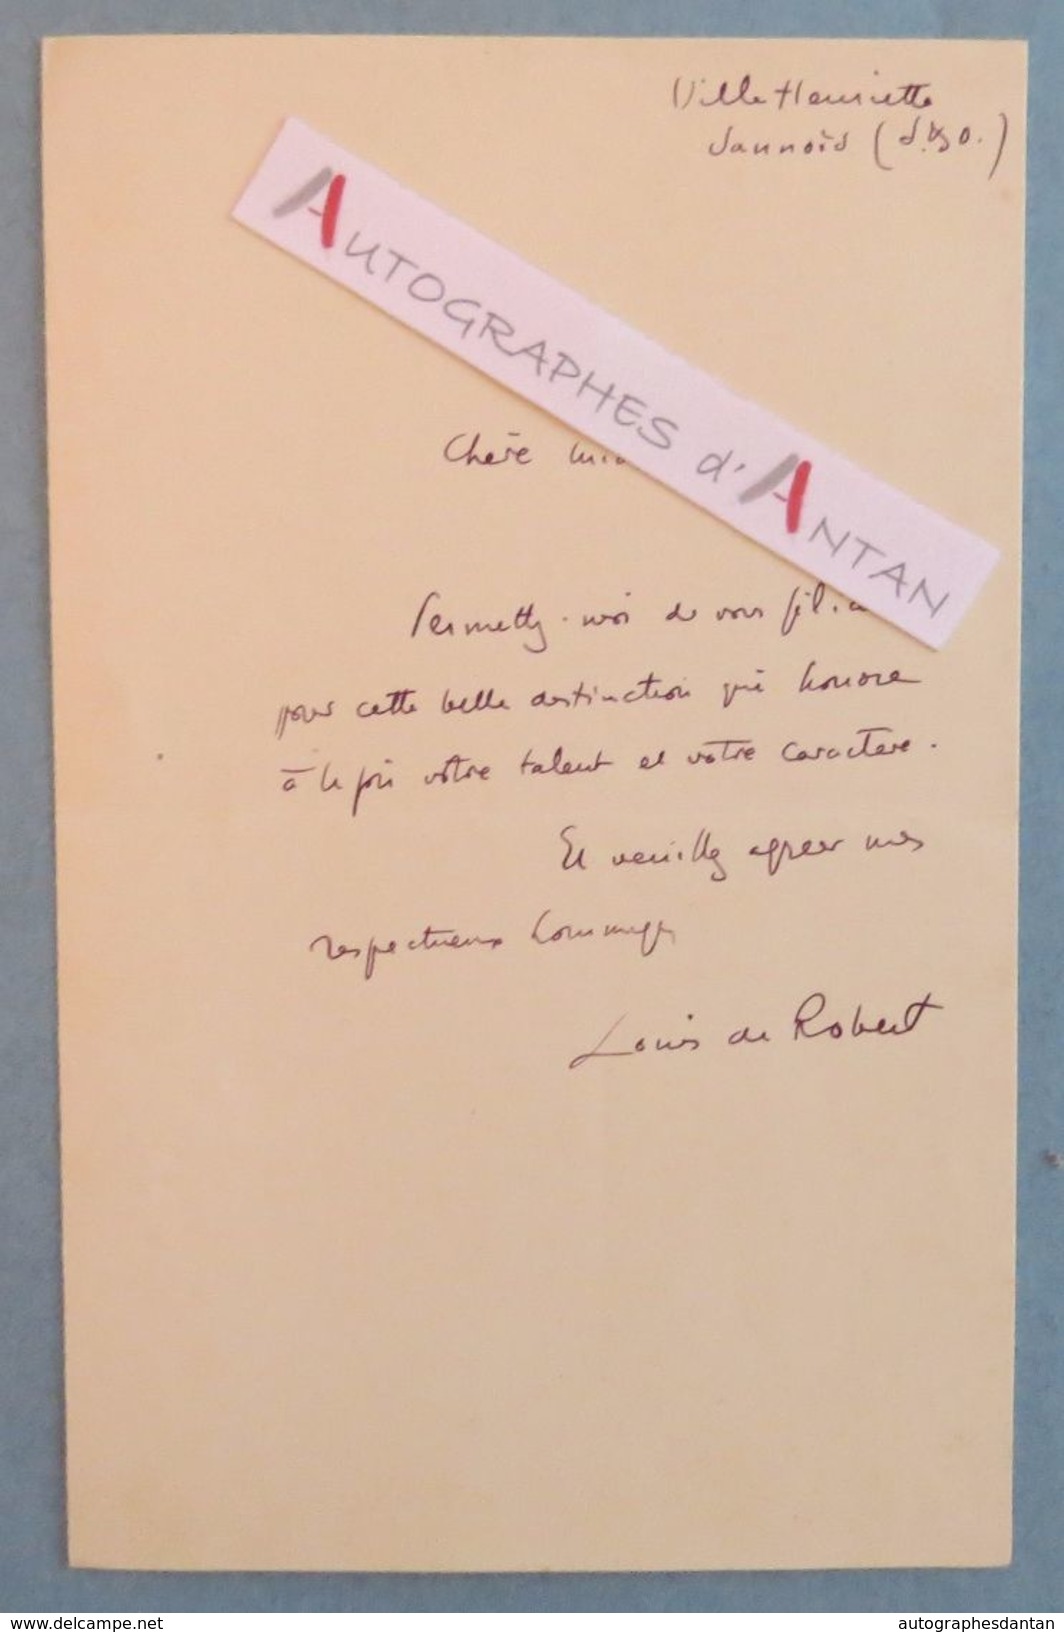 Villa Henriette
Sannois (S.&O.)
AUTOGRAPHES d'ANTAN
Chère
Permettez-moi de vous
pour cette belle distinction qui honore
à la fois votre talent et votre caractère.
Et veuillez agréer mes
respectueux hommages
Louis de Robert
www.delcampe.net
autographesdantan